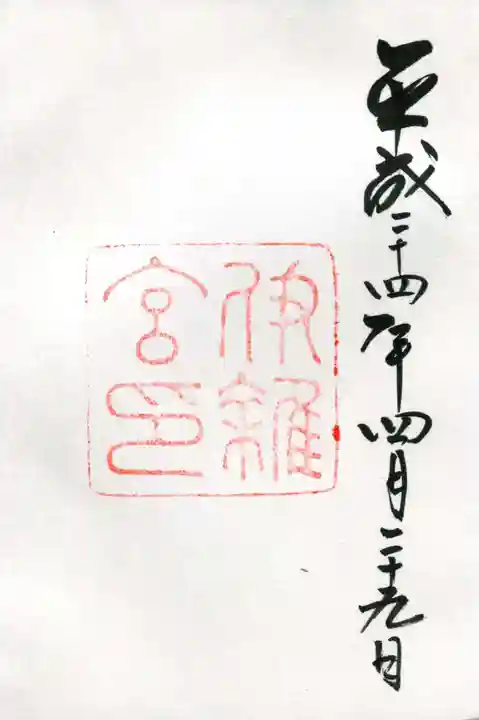 平成二十四年四月二十九日
伊雜
宮印